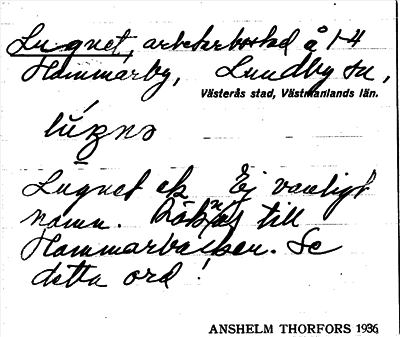 Lugnet, arbetarbostad å 1-4
Hammarby, Lundby sn,
Västerås stad, Västmanlands län.
Lugnet ek. Ej vanligt
namn. Räknas till
Hammarbacken. Se
detta ord!
ANSHELM THORFORS 1936